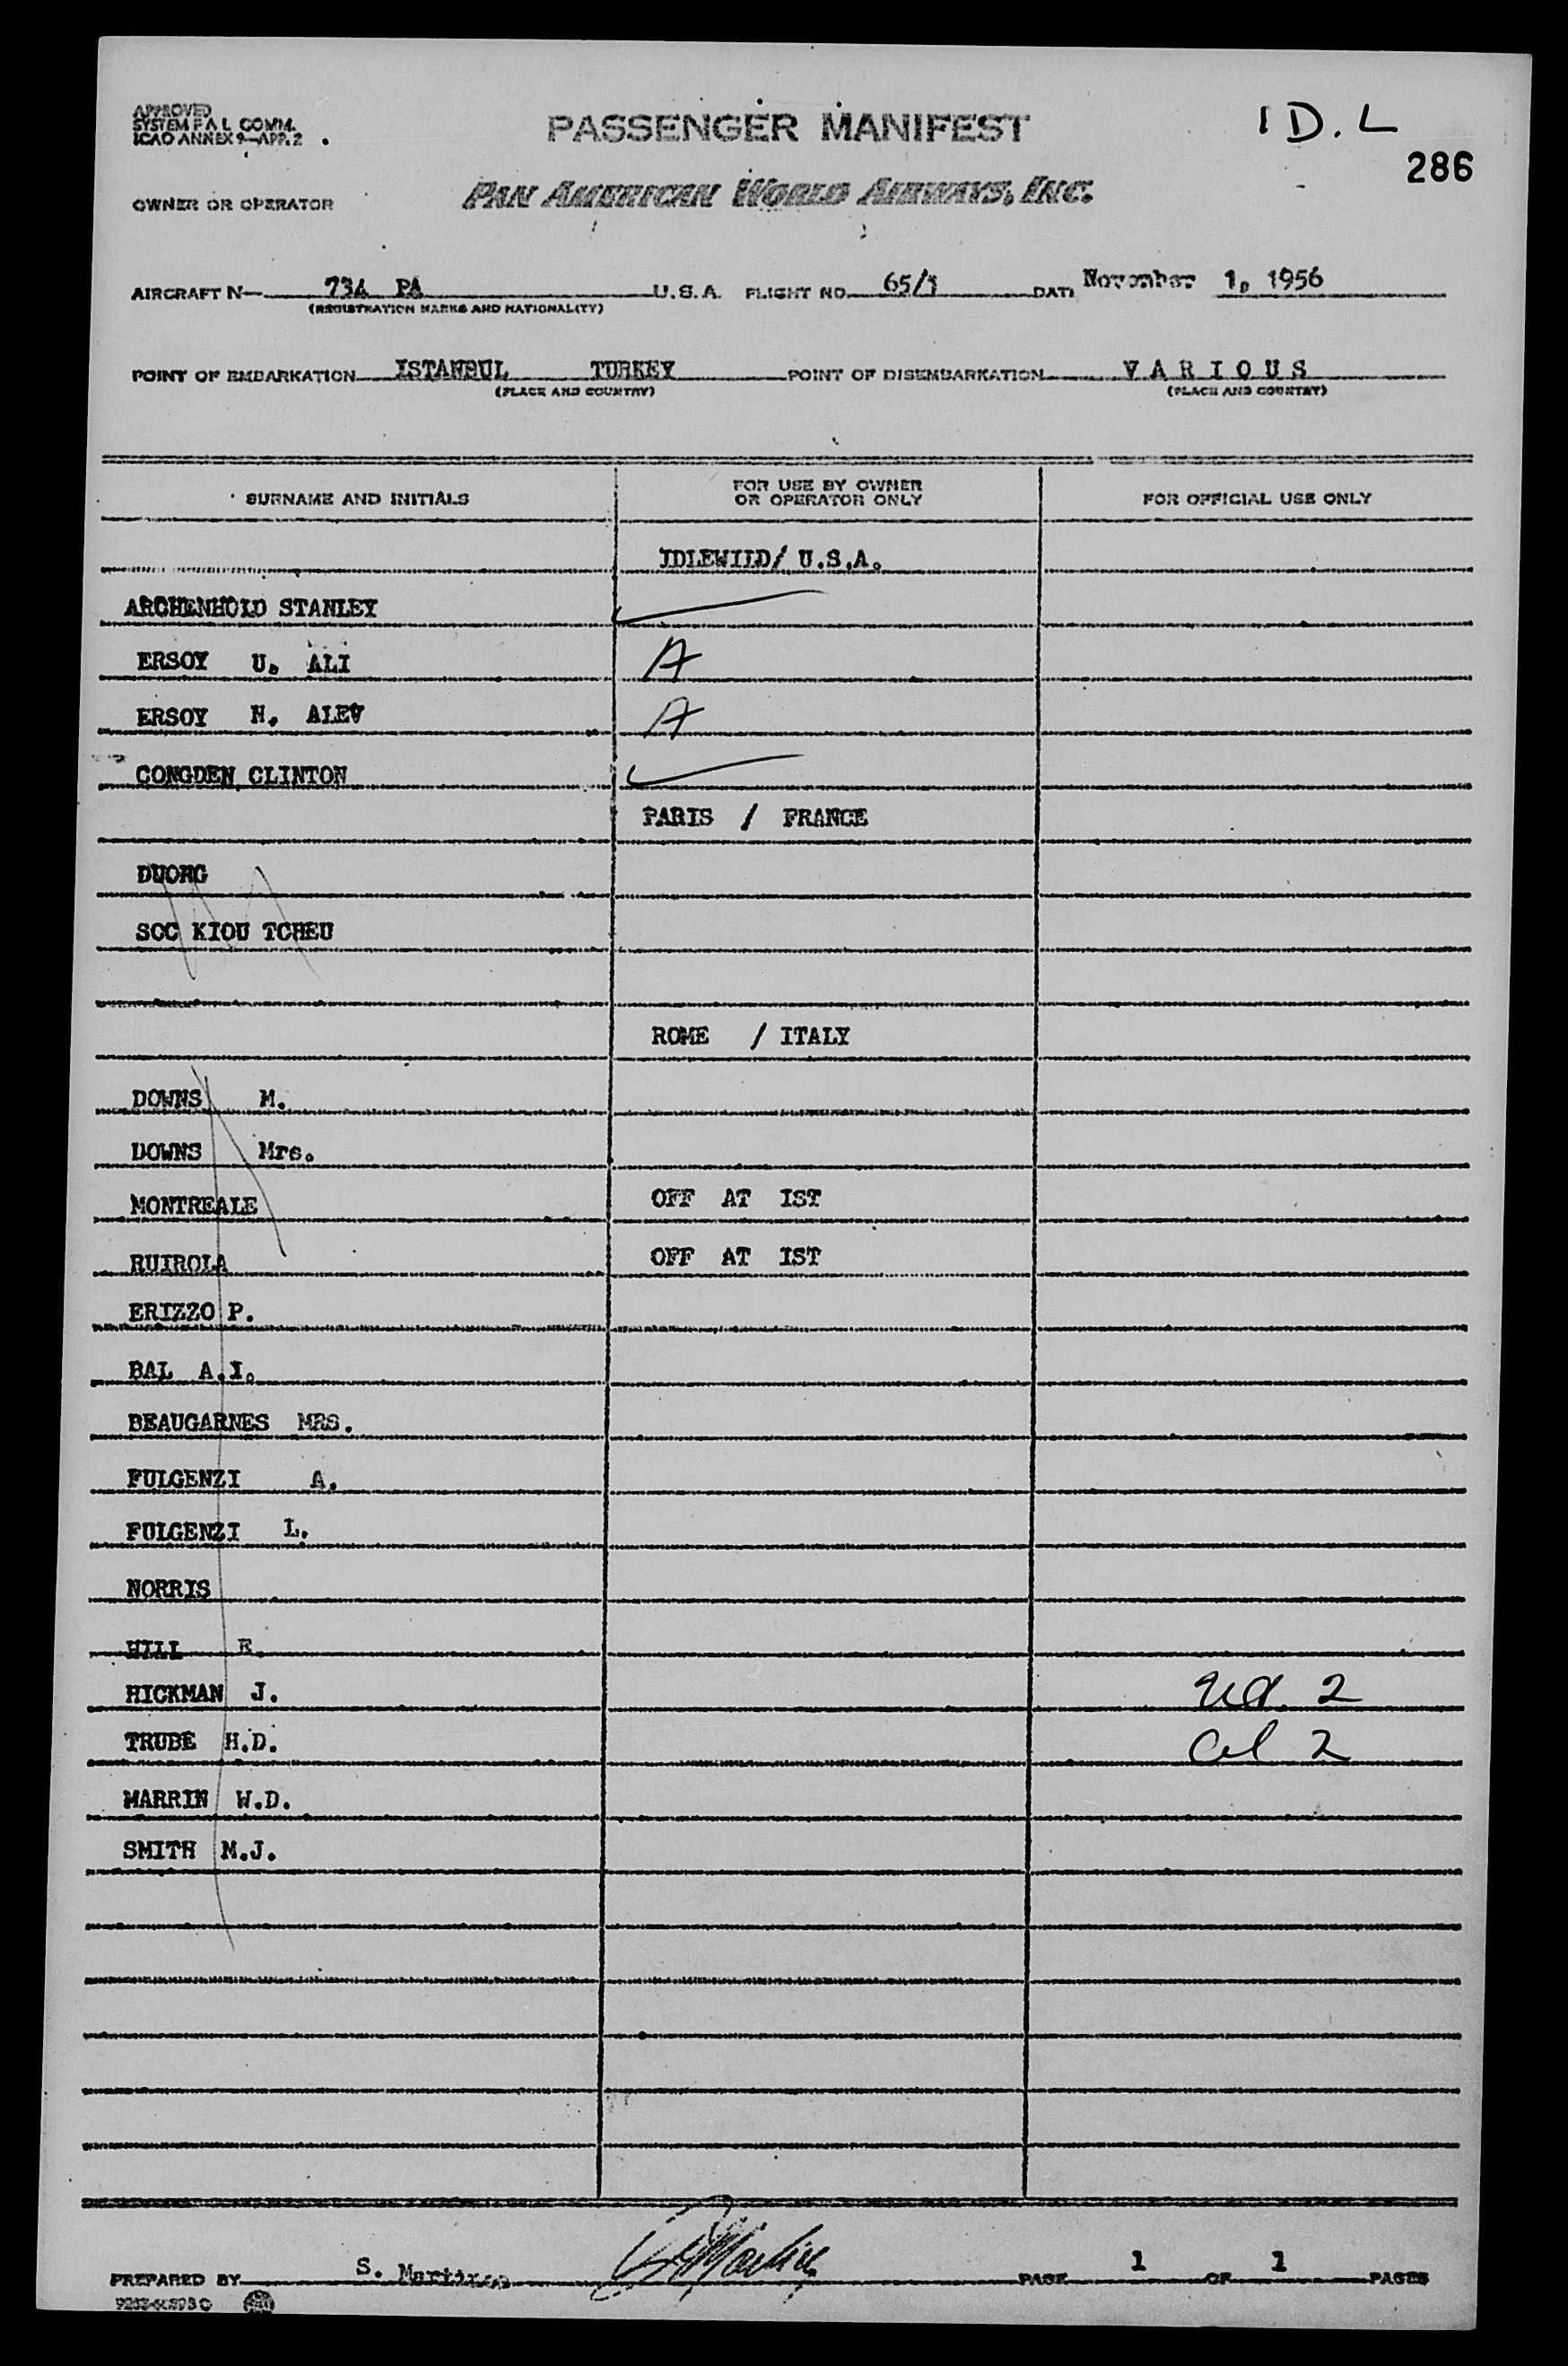 APPROVED
SYSTEM F.A.L. COMM.
ICAO ANNEX 9-APP. 2
PASSENGER MANIFEST
I D. L
286
OWNER OR OPERATOR PAN AMERICAN WORLD AIRWAYS, INC.
AIRCRAFT N- 734 PA U.S.A. FLIGHT NO. 65/1 DATE November 1, 1956
(REGISTRATION MARKS AND NATIONALITY)
POINT OF EMBARKATION ISTANBUL TURKEY POINT OF DISEMBARKATION V A R I O U S
(PLACE AND COUNTRY) (PLACE AND COUNTRY)
SURNAME AND INITIALS FOR USE BY OWNER OR OPERATOR ONLY FOR OFFICIAL USE ONLY
IDLEWILD/ U.S.A.
ARCHENHOLD STANLEY
ERSOY U. ALI A
ERSOY N. ALEV A
CONGDEN CLINTON
PARIS / FRANCE
DUONG
SOC KIOU TCHEU
ROME / ITALY
DOWNS M.
DOWNS Mrs.
MONTREALE OFF AT IST
RUIROLA OFF AT IST
ERIZZO P.
BAL A.I.
BEAUGARNES MRS.
FULGENZI A.
FULGENZI L.
NORRIS
HILL E
HICKMAN J. 2
TRUBE H.D. al 2
MARRIN W.D.
SMITH M.J.
PREPARED BY S. PAGE 1 OF 1 PAGES